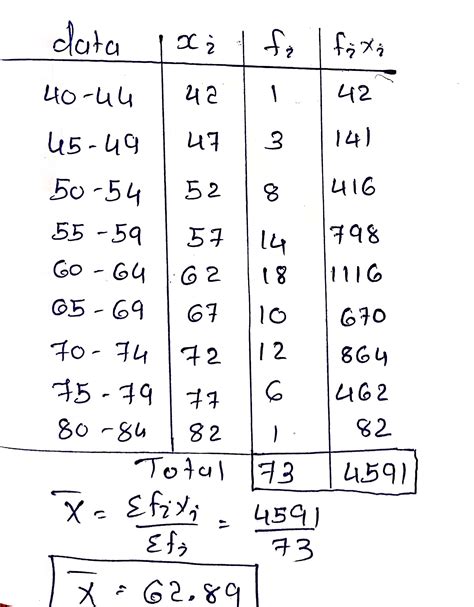 data xᵢ fᵢ fᵢxᵢ
40-44 42 1 42
45-49 47 3 141
50-54 52 8 416
55-59 57 14 798
60-64 62 18 1116
65-69 67 10 670
70-74 72 12 864
75-79 77 6 462
80-84 82 1 82
Total 73 4591
X̄ = Σfᵢxᵢ / Σfᵢ = 4591 / 73
X̄ = 62.89